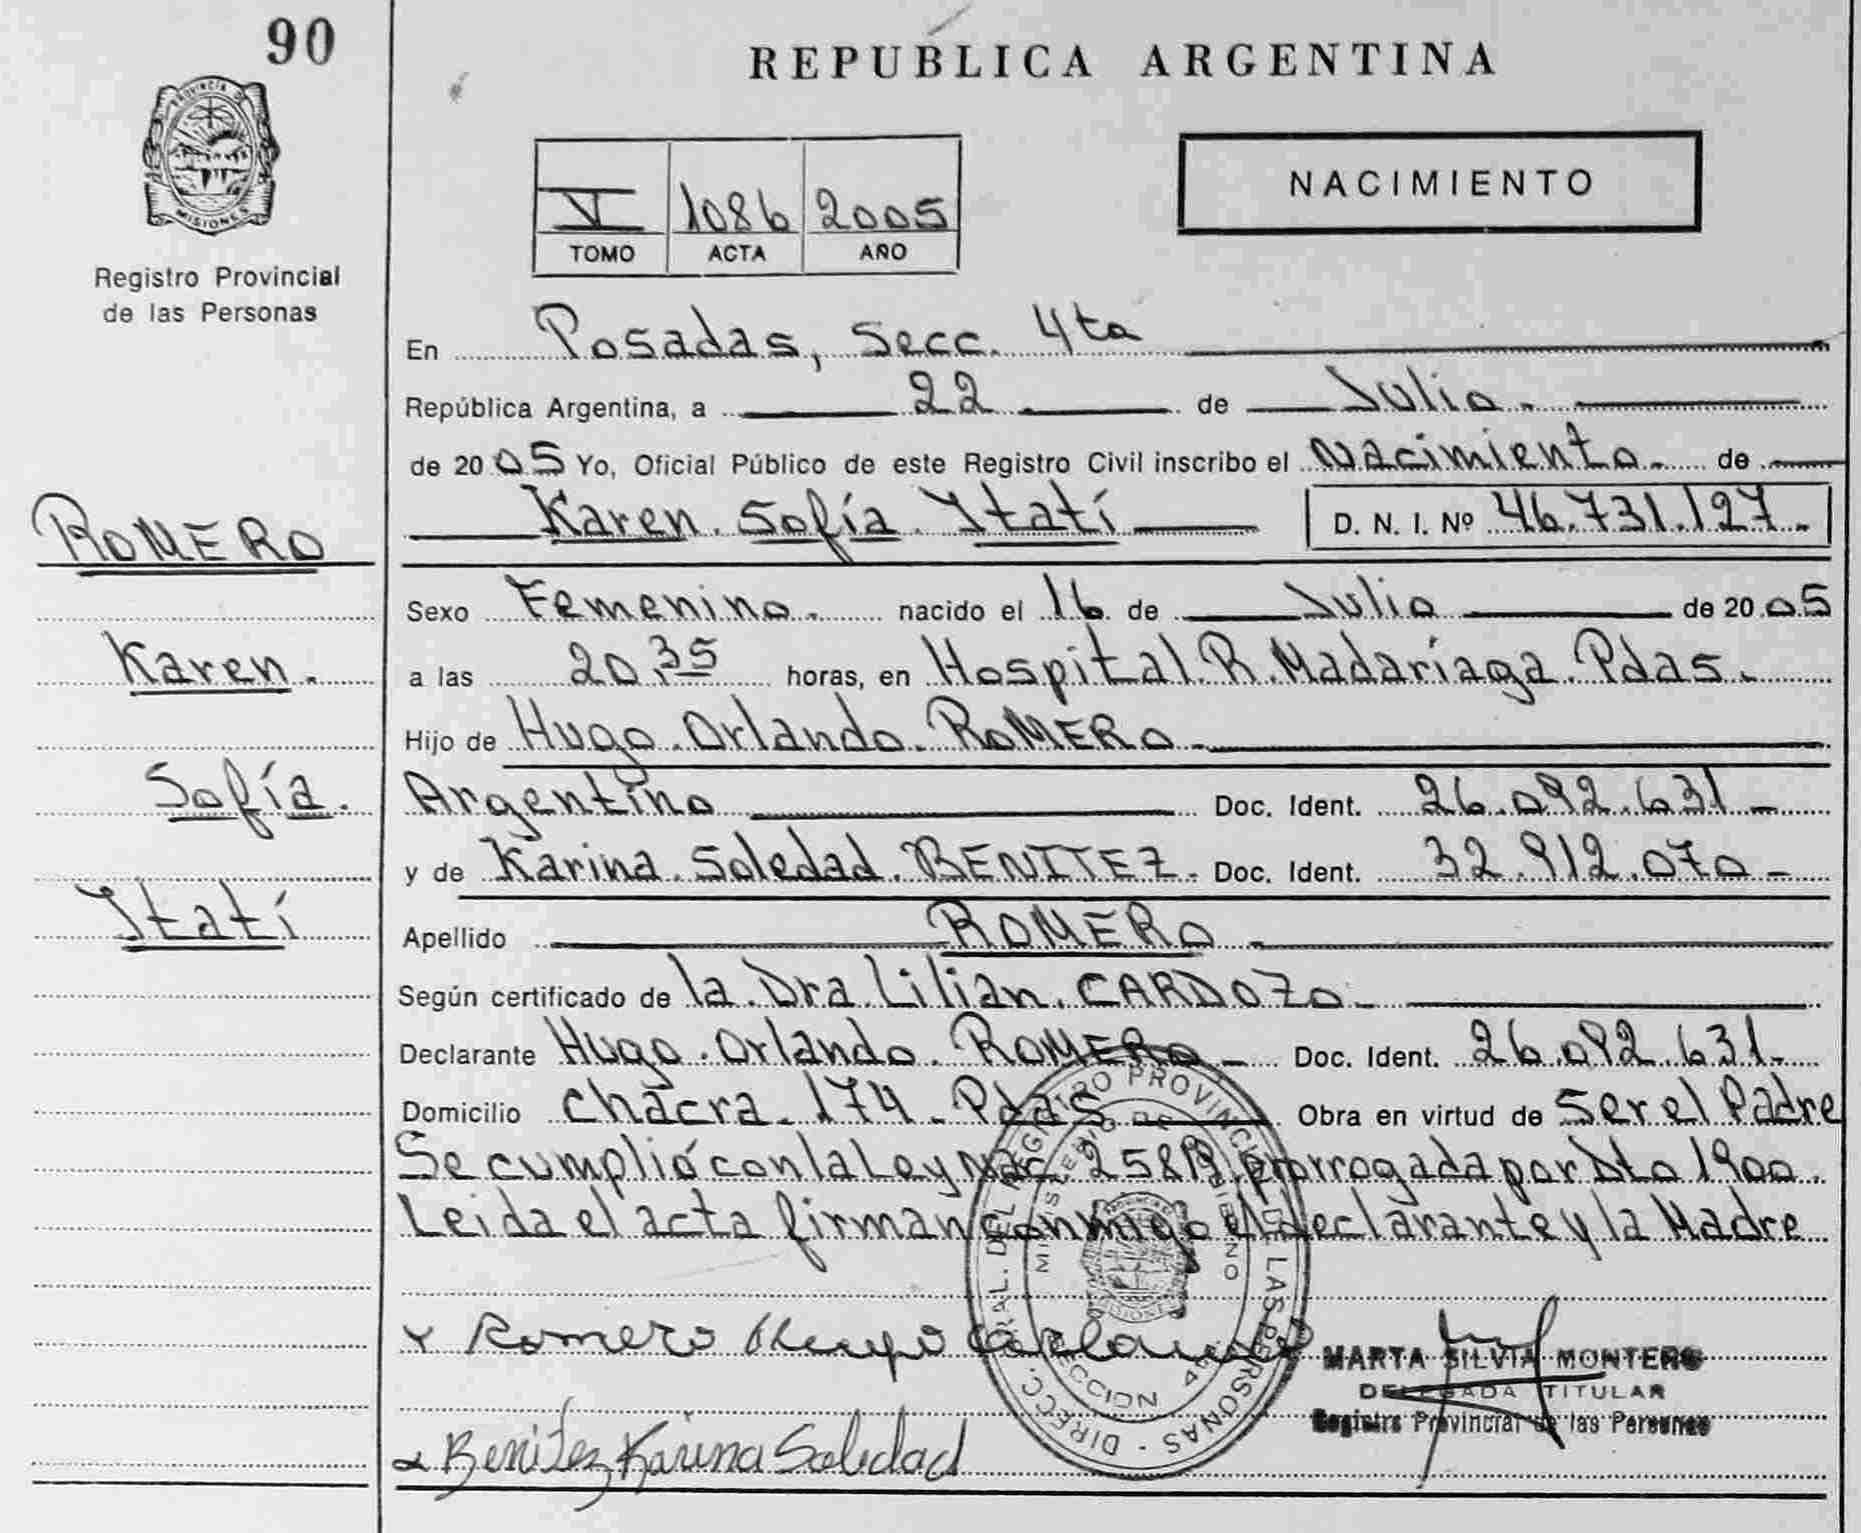 90
REPUBLICA ARGENTINA
PROVINCIA DE
MISIONES
Registro Provincial
de las Personas
V 1086 2005
TOMO ACTA AÑO
NACIMIENTO
En Posadas, Secc. 4ta
República Argentina, a 22 de Julio.
de 2005 Yo, Oficial Público de este Registro Civil inscribo el Nacimiento. de
Karen Sofía Itatí D. N. I. Nº 46.731.127.
ROMERO
Karen.
Sofía.
Itatí
Sexo Femenino. nacido el 16 de Julio de 2005
a las 20.35 horas, en Hospital R. Madariaga. Pdas.
Hijo de Hugo Orlando ROMERO
Argentino Doc. Ident. 26.092.631-
y de Karina Soledad BENITEZ. Doc. Ident. 32.912.070-
Apellido ROMERO
Según certificado de la Dra Lilian CARDOZO
Declarante Hugo Orlando ROMERO Doc. Ident. 26.092.631.
Domicilio Chacra 174 - Pdas Obra en virtud de Ser el Padre
Se cumplió con la Ley Nac 25819 prorrogada por Dto 1900.
Leida el acta firman conmigo el declarante y la Madre
x Romero Hugo Orlando
x Benitez Karina Soledad
MARTA SILVIA MONTERO
DELEGADA TITULAR
Registro Provincial de las Personas
DIRECC. GRAL. DEL REGISTRO PROVINCIAL DE LAS PERSONAS
MINISTERIO DE GOBIERNO
MISIONES
SECCION 4ª